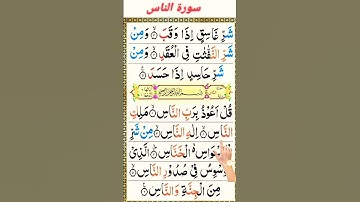 سورة الناس
شَرِّ غَاسِقٍ اِذَا وَقَبَ ۙ وَمِنْ
شَرِّ النَّفّٰثٰتِ فِي الْعُقَدِ ۙ وَمِنْ
شَرِّ حَاسِدٍ اِذَا حَسَدَ
قُلْ اَعُوْذُ بِرَبِّ النَّاسِ ۙ مَلِكِ
النَّاسِ ۙ اِلٰهِ النَّاسِ ۙ مِنْ شَرِّ
الْوَسْوَاسِ الْخَنَّاسِ ۙ الَّذِيْ
يُوَسْوِسُ فِيْ صُدُوْرِ النَّاسِ ۙ
مِنَ الْجِنَّةِ وَالنَّاسِ